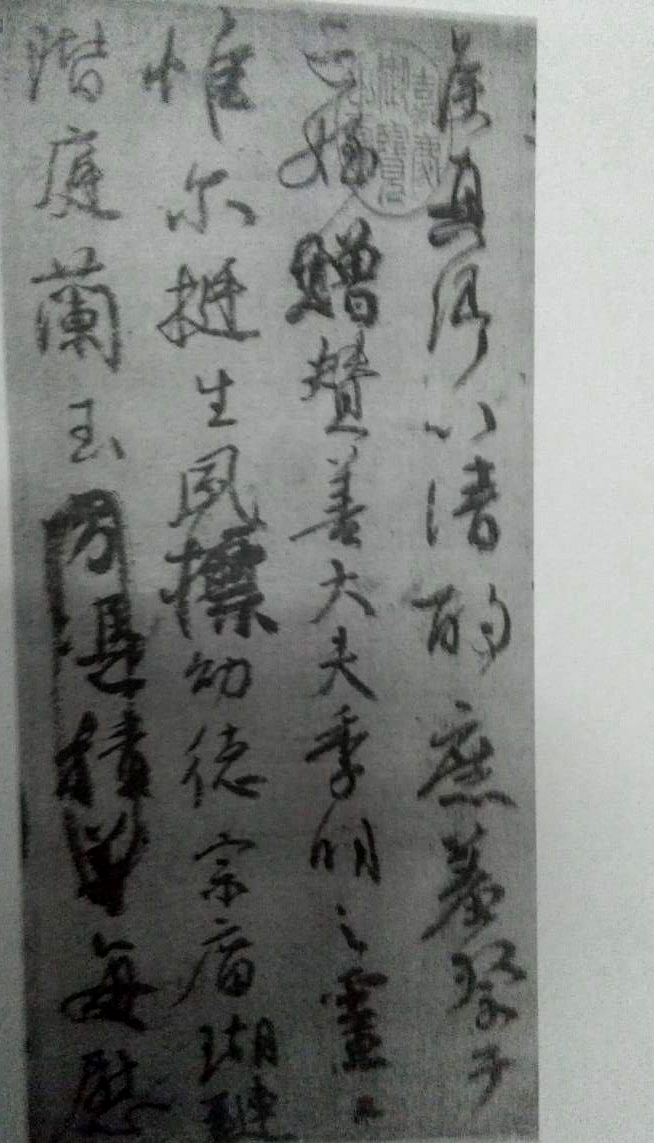 侯真卿以清酌庶羞祭于
亡姪贈贊善大夫季明之靈曰
惟尔挺生夙標幼德宗廟瑚璉
階庭蘭玉方憑積善每慰